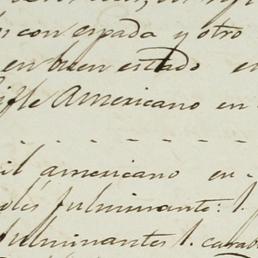 s con espada y otro
en buen estado en
ifle Americano en
il americano en
fulminante: 1.
fulminantes 1.